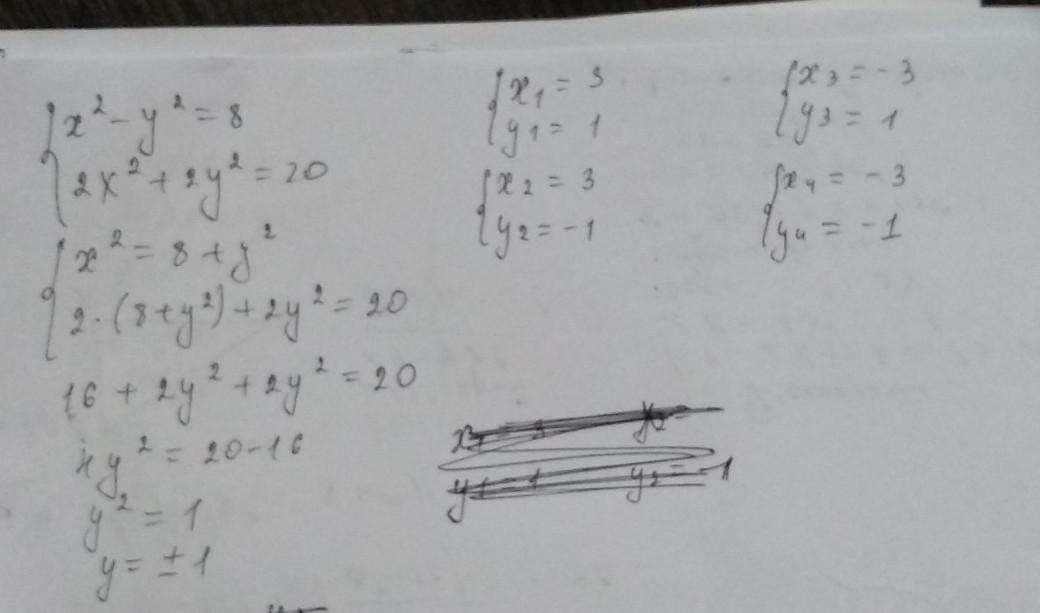 x² - y² = 8
2x² + 2y² = 20
x² = 8 + y²
2·(8+y²) + 2y² = 20
16 + 2y² + 2y² = 20
4y² = 20-16
y² = 1
y = ± 1
x₁ = 3
y₁ = 1
x₂ = 3
y₂ = -1
x₃ = -3
y₃ = 1
x₄ = -3
y₄ = -1
y₁ = 1 y₂ = -1